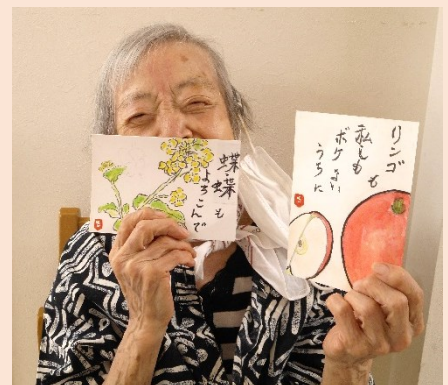 蝶蝶も
よろこんで
リンゴも
私しも
ボケない
うちに